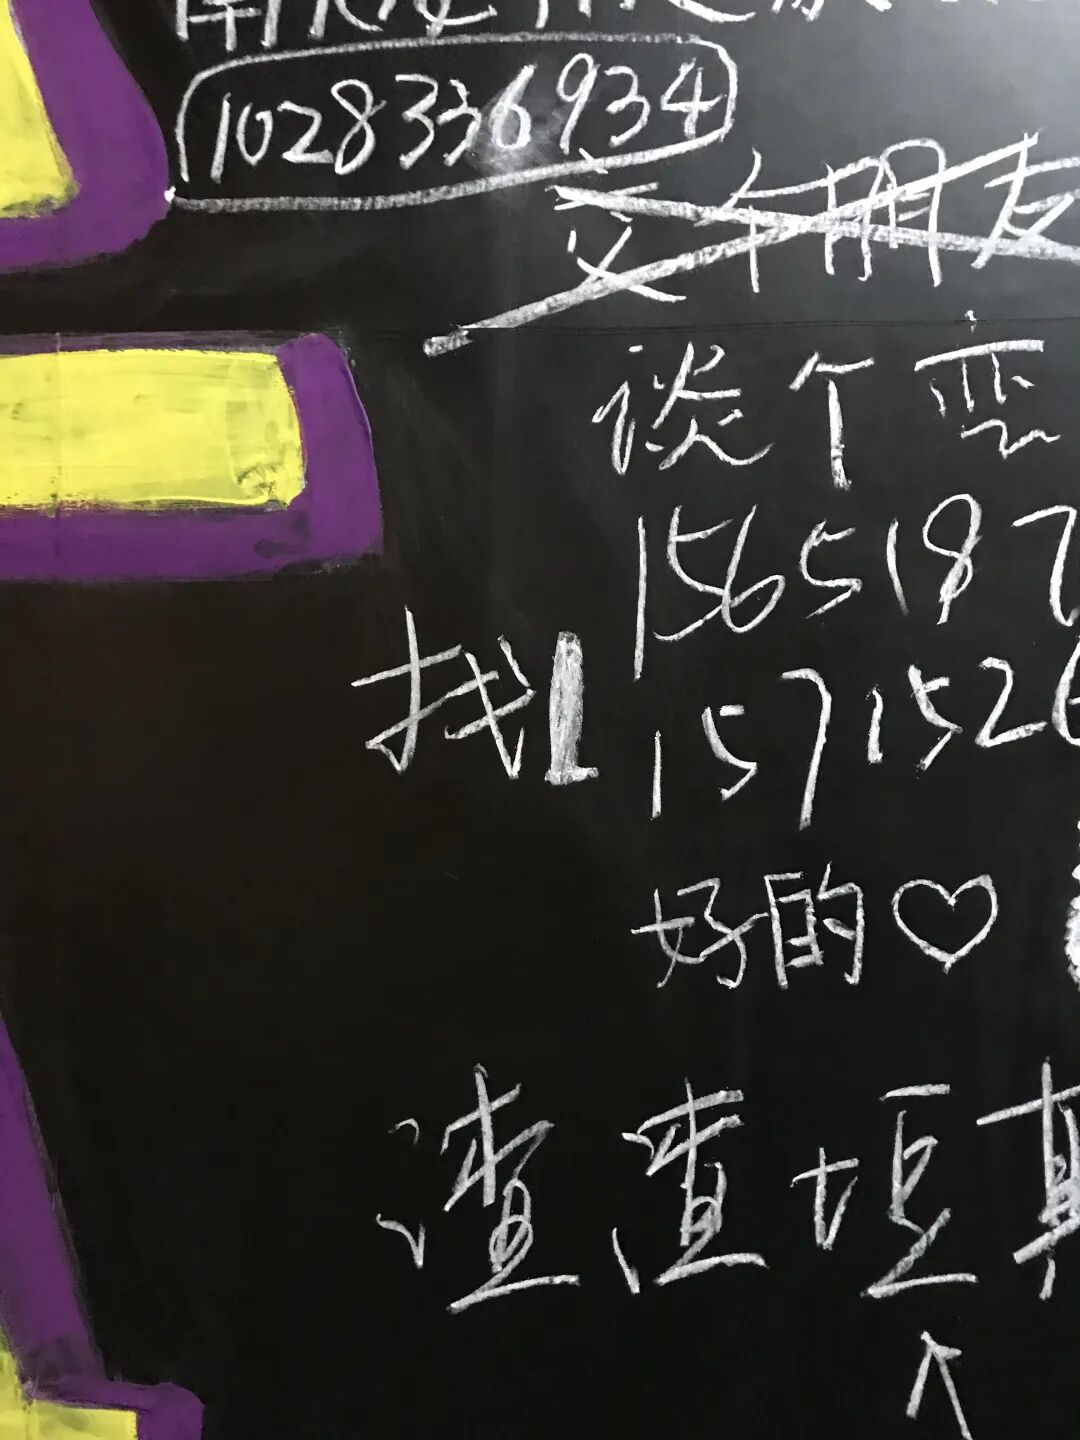 1028336934
交个朋友
谈个恋
1565187
找 1571526
好的♡
渣渣垣